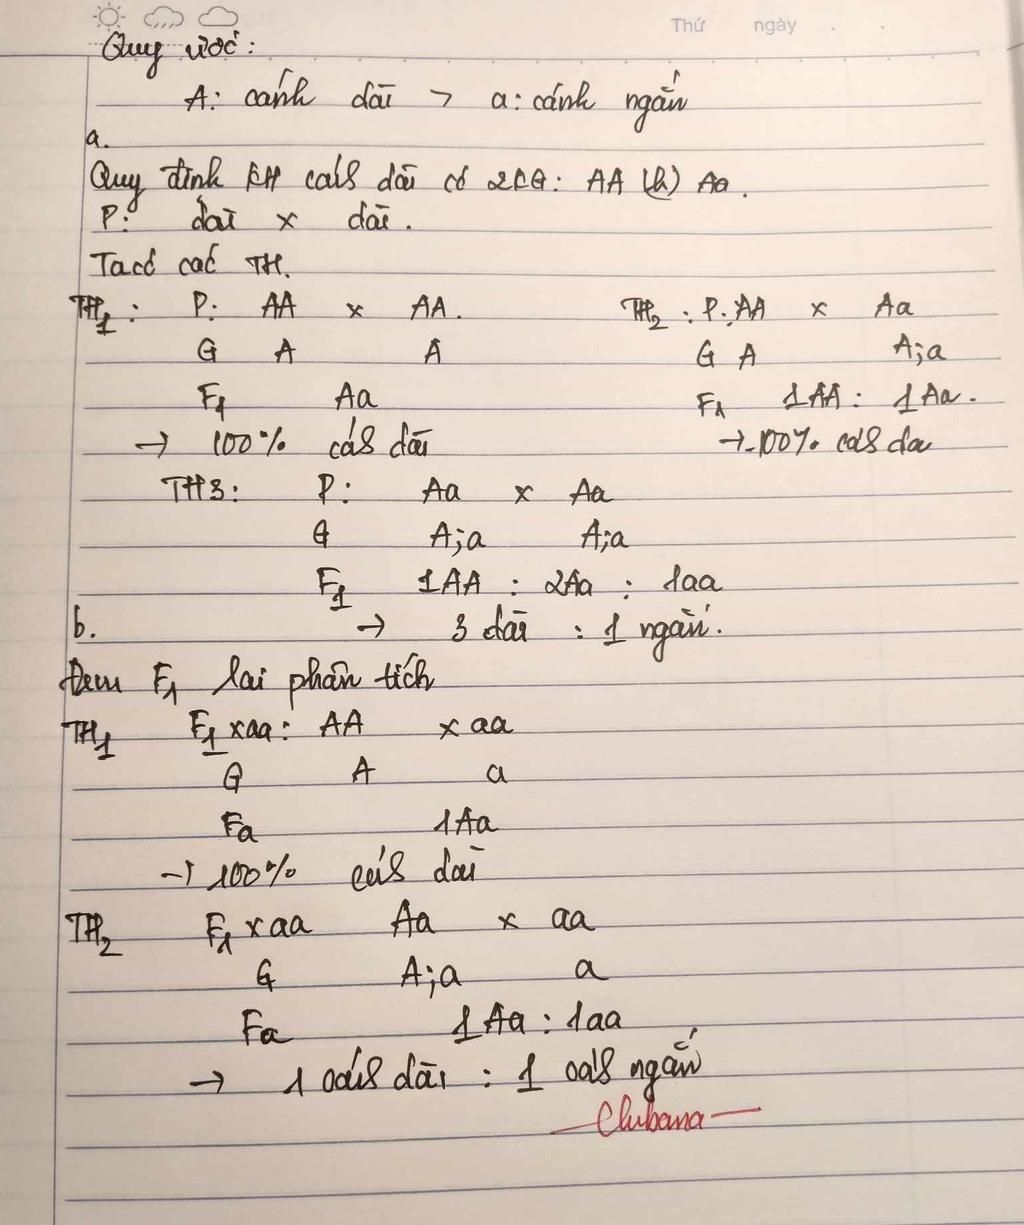 Thứ ngày
Quy ước:
A: cánh dài > a: cánh ngắn
a.
Quy định KH cás dài có 2KG: AA (h) Aa.
P: dài x dài.
Ta có các TH.
TH1: P: AA x AA.
G A A
F1 Aa
→ 100% cás dài
TH2: P: AA x Aa
G A A;a
F1 1AA: 1Aa.
→ 100% cás da
TH3: P: Aa x Aa
G A;a A;a
F1 1AA : 2Aa : 1aa
→ 3 dài : 1 ngắn.
b.
Đem F1 lai phân tích
TH1 F1 xaa: AA x aa
G A a
Fa 1Aa
→ 100% cás dài
TH2 F1 x aa Aa x aa
G A;a a
Fa 1Aa : 1aa
→ 1 cás dài : 1 cás ngắn
Clubana